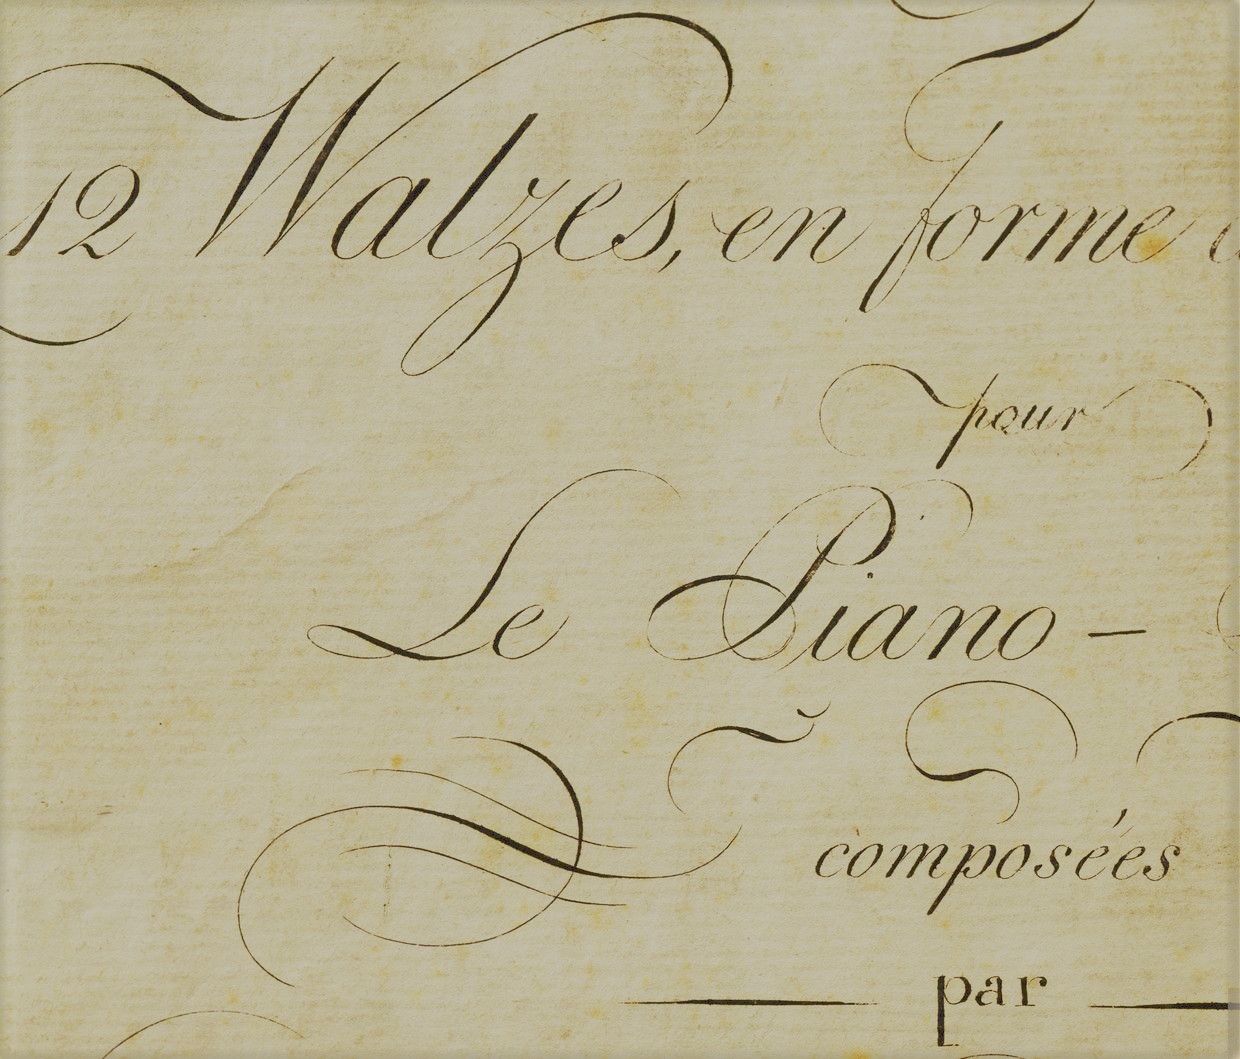 12 Walzes, en forme
pour
Le Piano -
composées
par